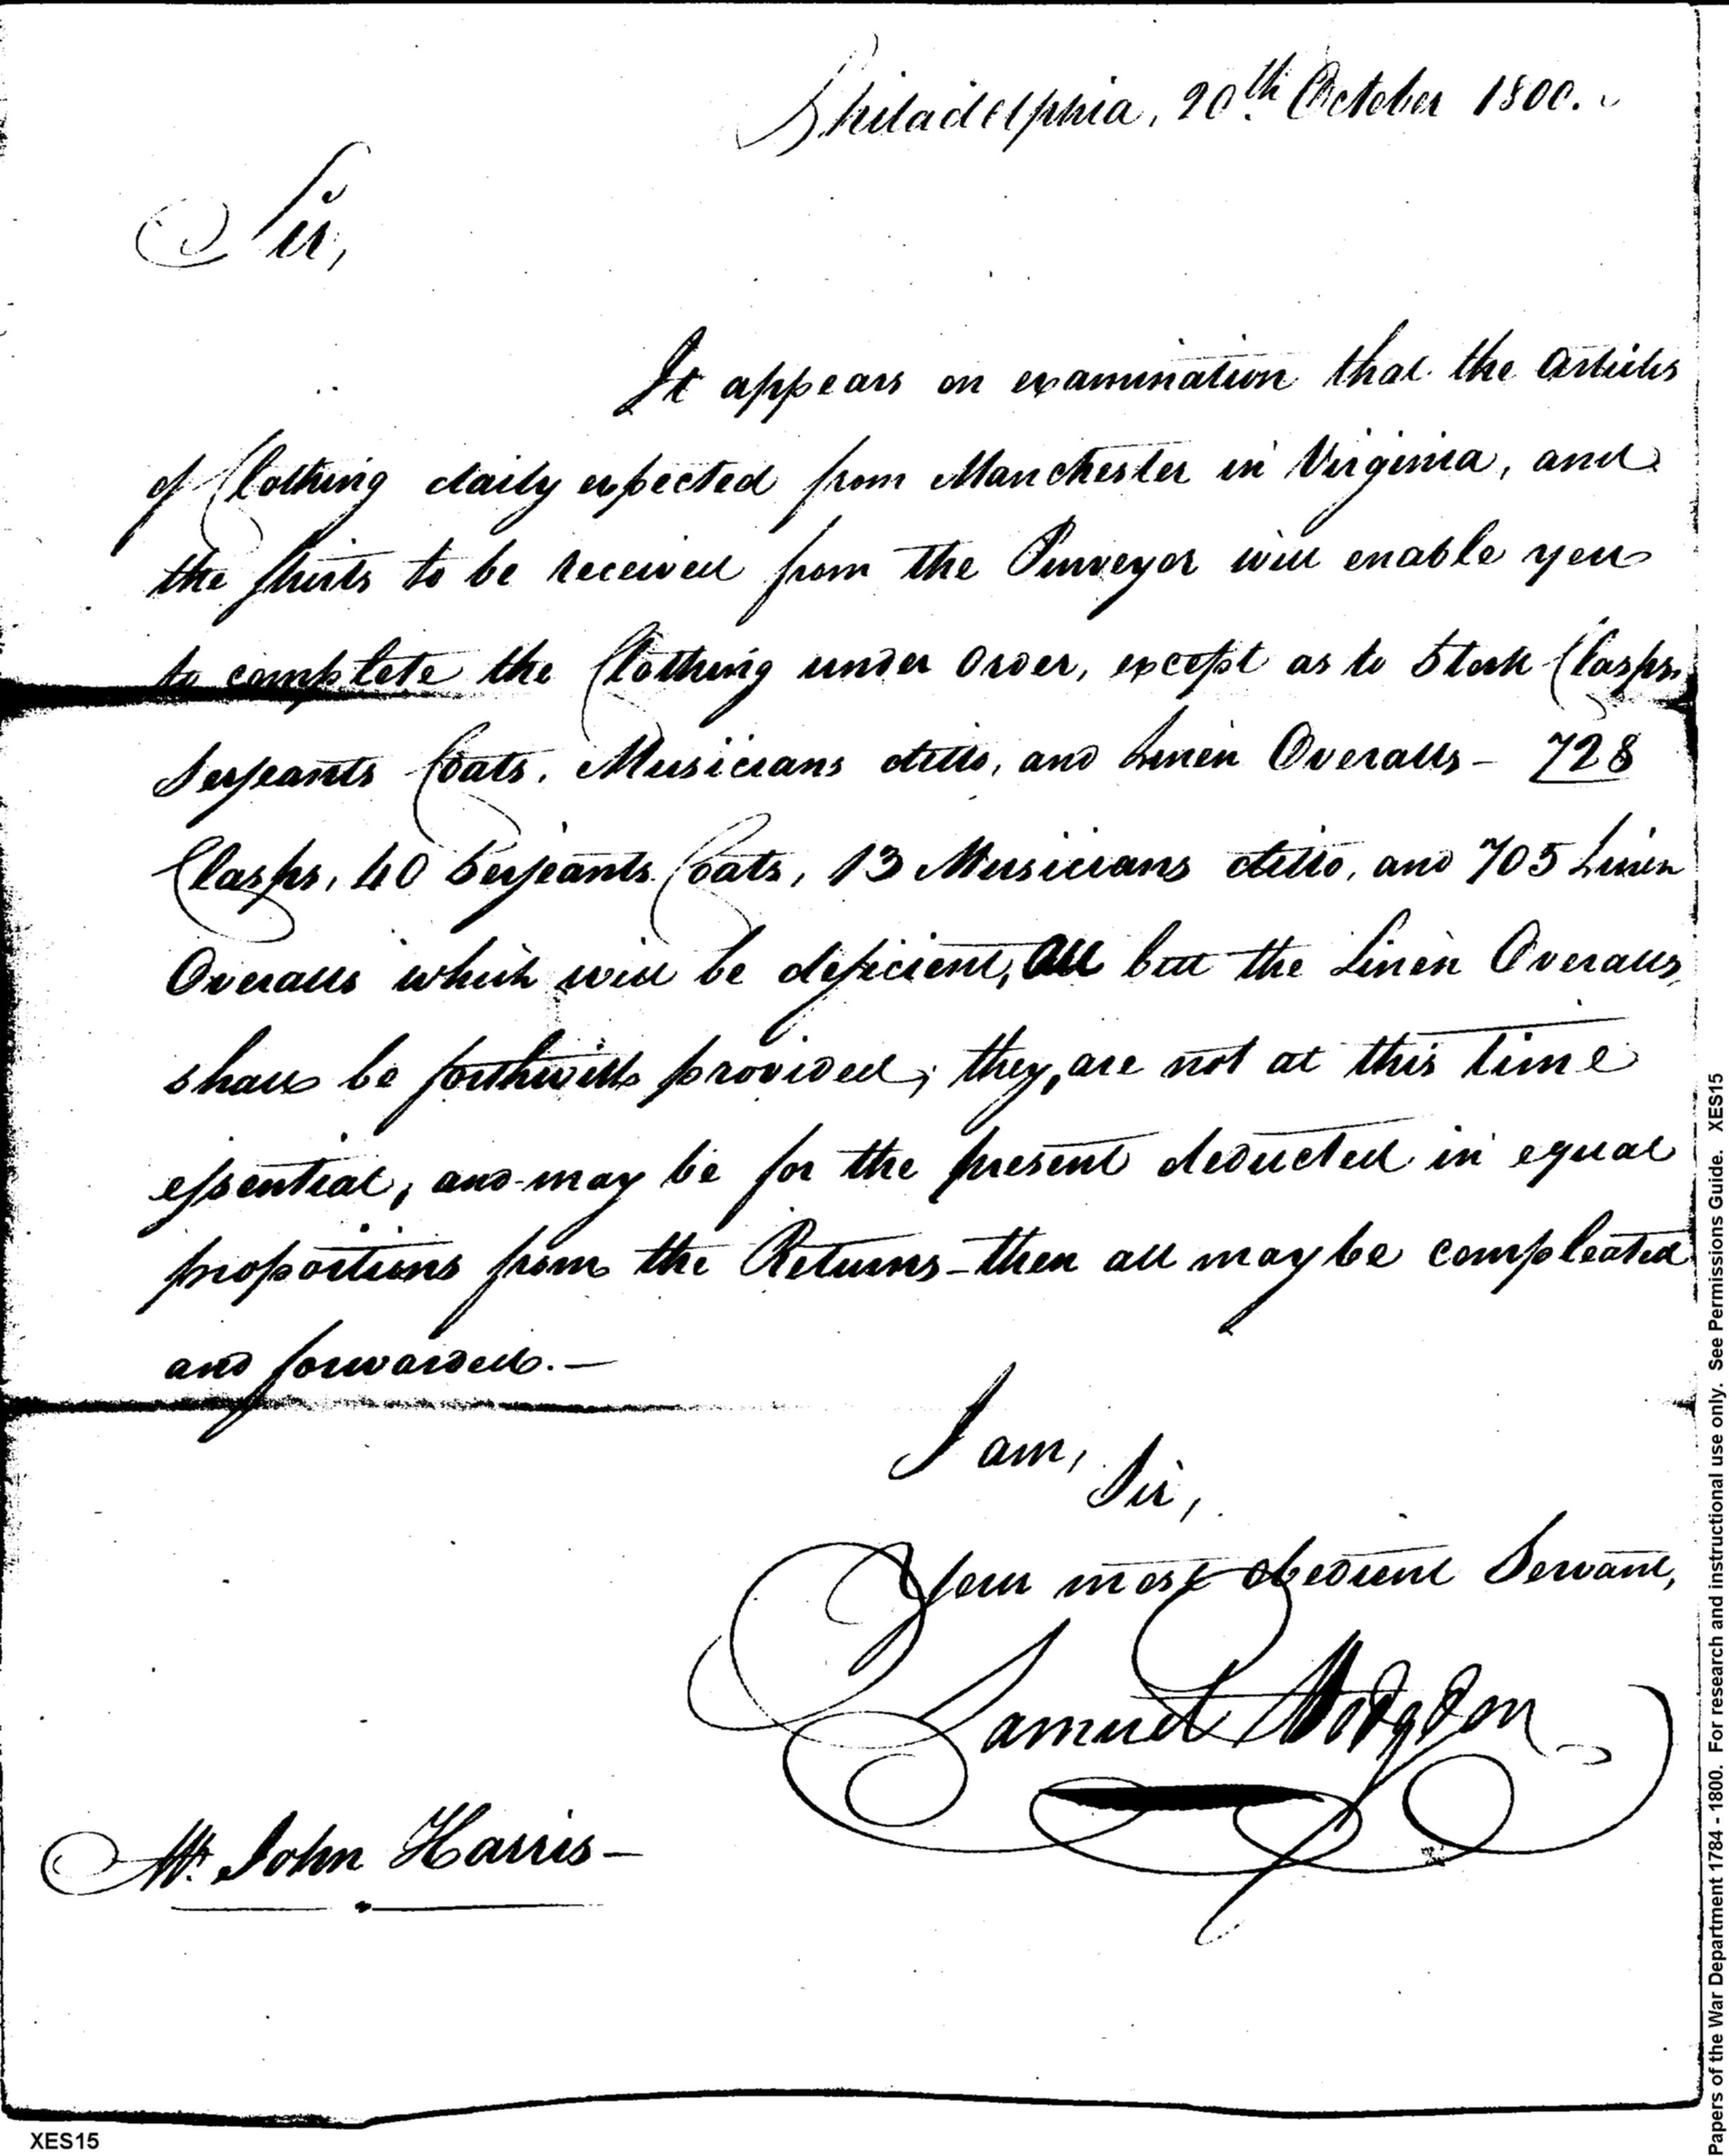 Philadelphia, 20th October 1800.
Sir,
It appears on examination that the articles
of Clothing daily expected from Manchester in Virginia, and
the shirts to be received from the Purveyor will enable you
to complete the Clothing under order, except as to Stock Clasps,
Serjeants Coats, Musicians ditto, and Linen Overalls - 728
Clasps, 40 Serjeants Coats, 13 Musicians ditto, and 705 Linen
Overalls which will be deficient, all but the Linen Overalls,
shall be forthwith provided; they, are not at this time
essential, and may be for the present deducted in equal
proportions from the Returns - then all may be compleated
and forwarded. -
I am,
Sir,
Your most obedient Servant,
Samuel Hodgdon
Mr. John Harris -
XES15
Papers of the War Department 1784 - 1800. For research and instructional use only. See Permissions Guide. XES15